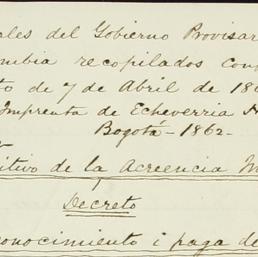 ales del Gobierno Provisor
mbia recopilados con
to de 7 de Abril de 186
Imprenta de Echeverria H
Bogotá - 1862 -
itivo de la Acreencia
Decreto
conocimiento i pago de